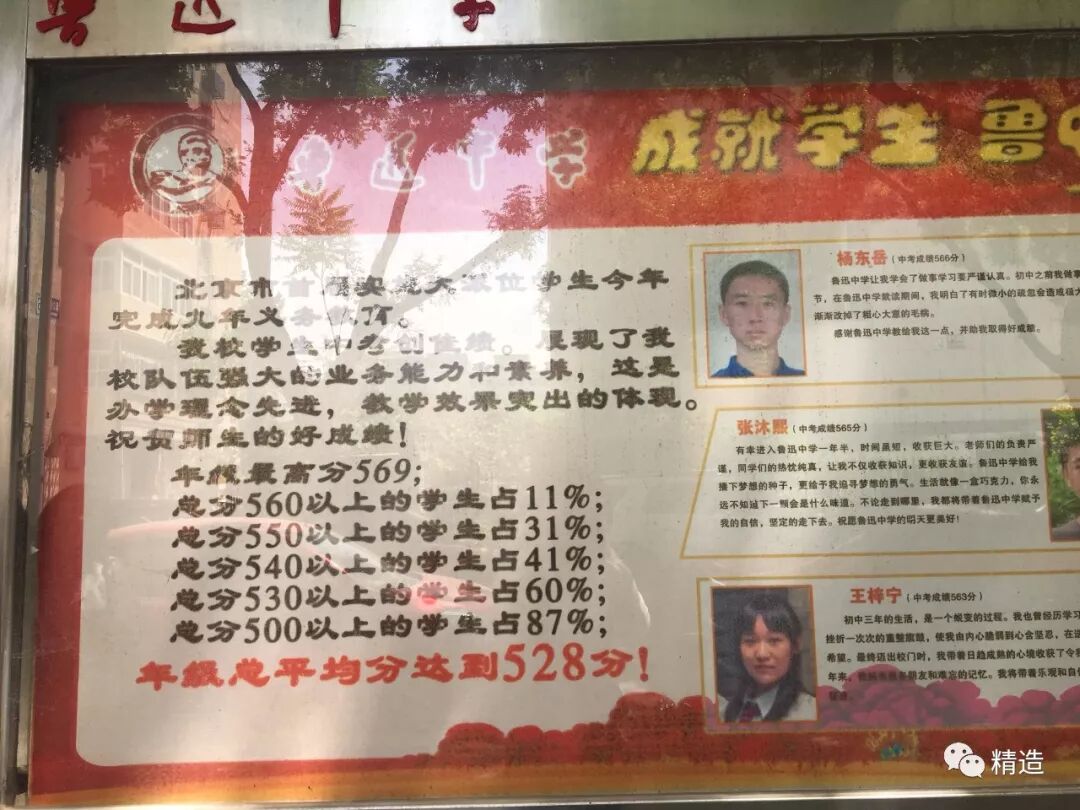 鲁迅中学
鲁迅中学
成就学生 鲁
北京市首届实施大派位学生今年
完成九年义务教育。
我校学生中考创佳绩。展现了我
校队伍强大的业务能力和素养，这是
办学理念先进，教学效果突出的体现。
祝贺师生的好成绩！
年级最高分569；
总分560以上的学生占11%；
总分550以上的学生占31%；
总分540以上的学生占41%；
总分530以上的学生占60%；
总分500以上的学生占87%；
年级总平均分达到528分！
杨东岳（中考成绩566分）
鲁迅中学让我学会了做事学习要严谨认真。初中之前我做事
节，在鲁迅中学就读期间，我明白了有时微小的疏忽会造成很大
渐渐改掉了粗心大意的毛病。
感谢鲁迅中学教给我这一点，并助我取得好成绩。
张沐熙（中考成绩565分）
有幸进入鲁迅中学一年半，时间虽短，收获巨大。老师们的负责严
谨，同学们的热忱纯真，让我不仅收获知识，更收获友谊。鲁迅中学给我
播下梦想的种子，更给予我追寻梦想的勇气。生活就像一盒巧克力，你永
远不知道下一颗会是什么味道。不论走到哪里，我都将带着鲁迅中学赋予
我的自信，坚定的走下去。祝愿鲁迅中学的明天更美好！
王梓宁（中考成绩563分）
初中三年的生活，是一个蜕变的过程。我也曾经历学习
挫折一次次的重整旗鼓，使我由内心脆弱到心会坚忍，在迷
希望。最终迈出校门时，我带着日趋成熟的心境收获了令我
年来，我拥有良多朋友和难忘的记忆。我将带着乐观和自信
精造